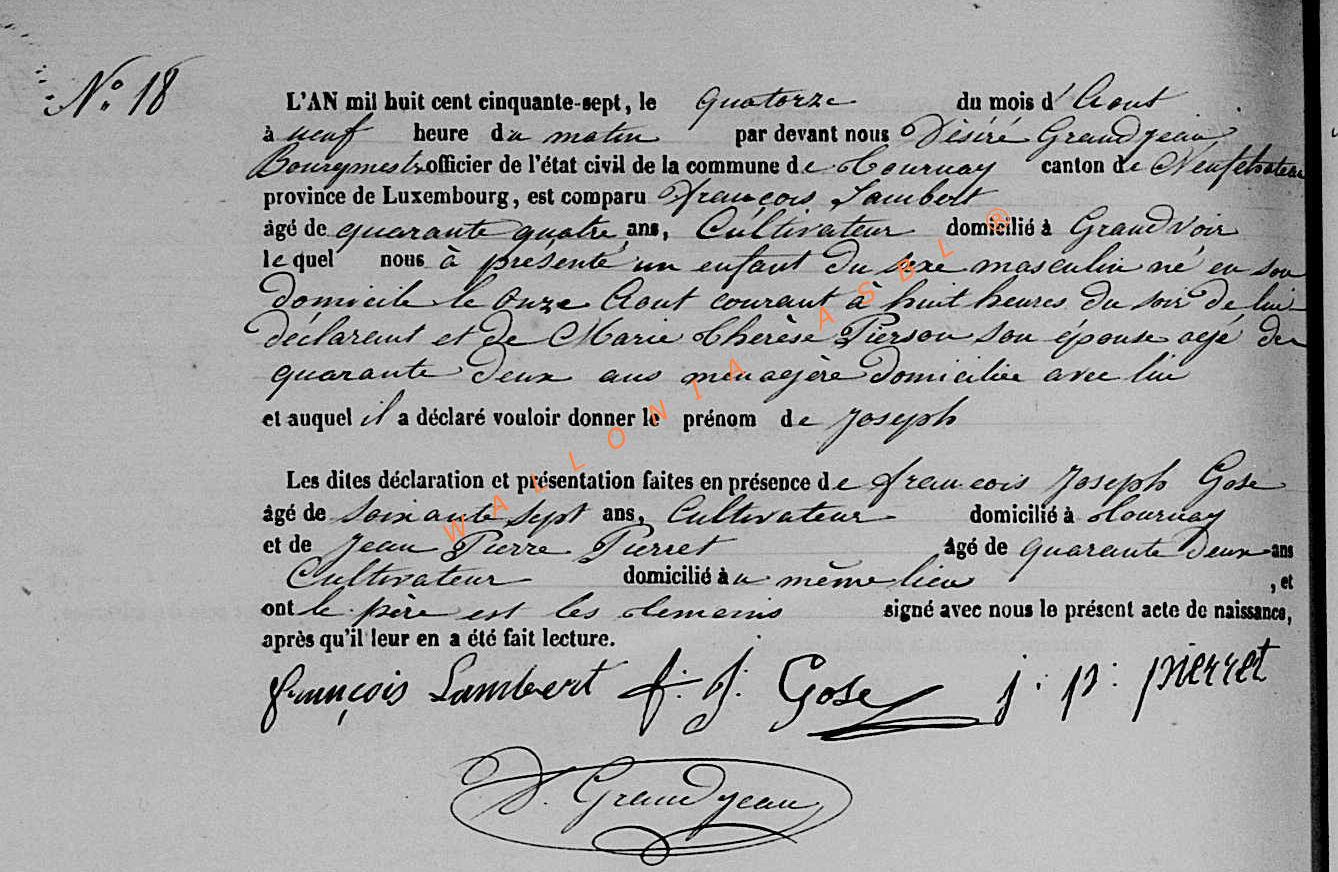 N.o 18
L'AN mil huit cent cinquante-sept, le quatorze du mois d'Aout
à neuf heure du matin par devant nous Désiré Grandjean
Bourgmestre officier de l'état civil de la commune de Tournay canton de Neufchateau
province de Luxembourg, est comparu françois Lambert
âgé de quarante quatre ans, Cultivateur domicilié à Grandvoir
lequel nous à présenté un enfant du sexe masculin né en son
domicile le onze Aout courant à huit heures du soir de lui
déclarant et de Marie Thérèse Pierson son épouse agé de
quarante deux ans menagère domiciliée avec lui
et auquel il a déclaré vouloir donner le prénom de Joseph
Les dites déclaration et présentation faites en présence de francois Joseph Gose
âgé de soixante sept ans, Cultivateur domicilié à Tournay
et de Jean Pierre Pierret âgé de quarante deux ans
Cultivateur domicilié au même lieu , et
ont le père est les temoins signé avec nous le présent acte de naissance,
après qu'il leur en a été fait lecture.
françois Lambert f. J. Gose j. p. pierret
D. Grandjean
WALLONIA ASBL ®